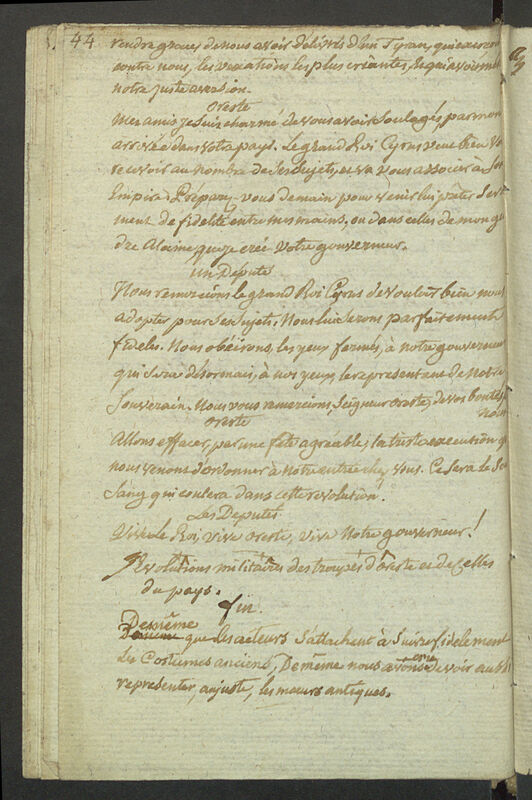 44
rendre graces de nous avoir délivrés d'un Tyran, qui exerçoit
contre nous, les vexations les plus criantes, ce qui avoit mérité
notre juste aversion.
Oreste
Mes amis, je suis charmé de vous avoir soulagés par mon
arrivée dans votre pays. Le grand Roi Cyrus veut bien vous
recevoir au nombre de ses sujets, et va vous associer à son
Empire. Préparez-vous demain pour venir lui prêter ser-
ment de fidelité entre mes mains, ou dans celles de mon gen-
dre Alaime que je crée votre gouverneur.
un Deputé
Nous remercions le grand Roi Cyrus de vouloir bien nous
adopter pour ses sujets. Nous lui serons parfaitement
fideles. Nous obéirons, les yeux fermés, à notre gouverneur
qui sera désormais, à nos yeux le représentant de notre
Souverain. Nous vous remercions, Seigneur Oreste, de vos bontés pour
nous
Oreste
Allons effacer, par une fête agréable, la triste execution que
nous venons d'ordonner à notre entrée chez vous. Ce sera le seul
sang qui coulera dans cette révolution.
Les Deputés
Vive le Roi, vive Oreste, vive Notre gouverneur!
Evolutions militaires des troupes d'Oreste et de celles
du pays.
fin.
De même
que les acteurs s'attachent à suivre fidelement
les Costumes anciens, De même nous devoir aussi
representer, au juste, les mœurs antiques.